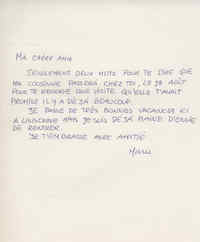 MA CHÈRE ANA
SEULEMENT DEUX MOTS POUR TE DIRE QUE
MA COUSINNE PASSERA CHEZ TOI, LE 30 AOÛT
POUR TE RENDRE UNE VISITE QU'ELLE T'AVAIT
PROMISE IL Y A DÉJÀ BEAUCOUP.
JE PASSE DE TRÈS BONNES VACANCES ICI
A LAUSANNE MAIS JE SUIS DÉJÀ
DE RENTRER.
JE T'EMBRASSE AVEC AMITIÉ